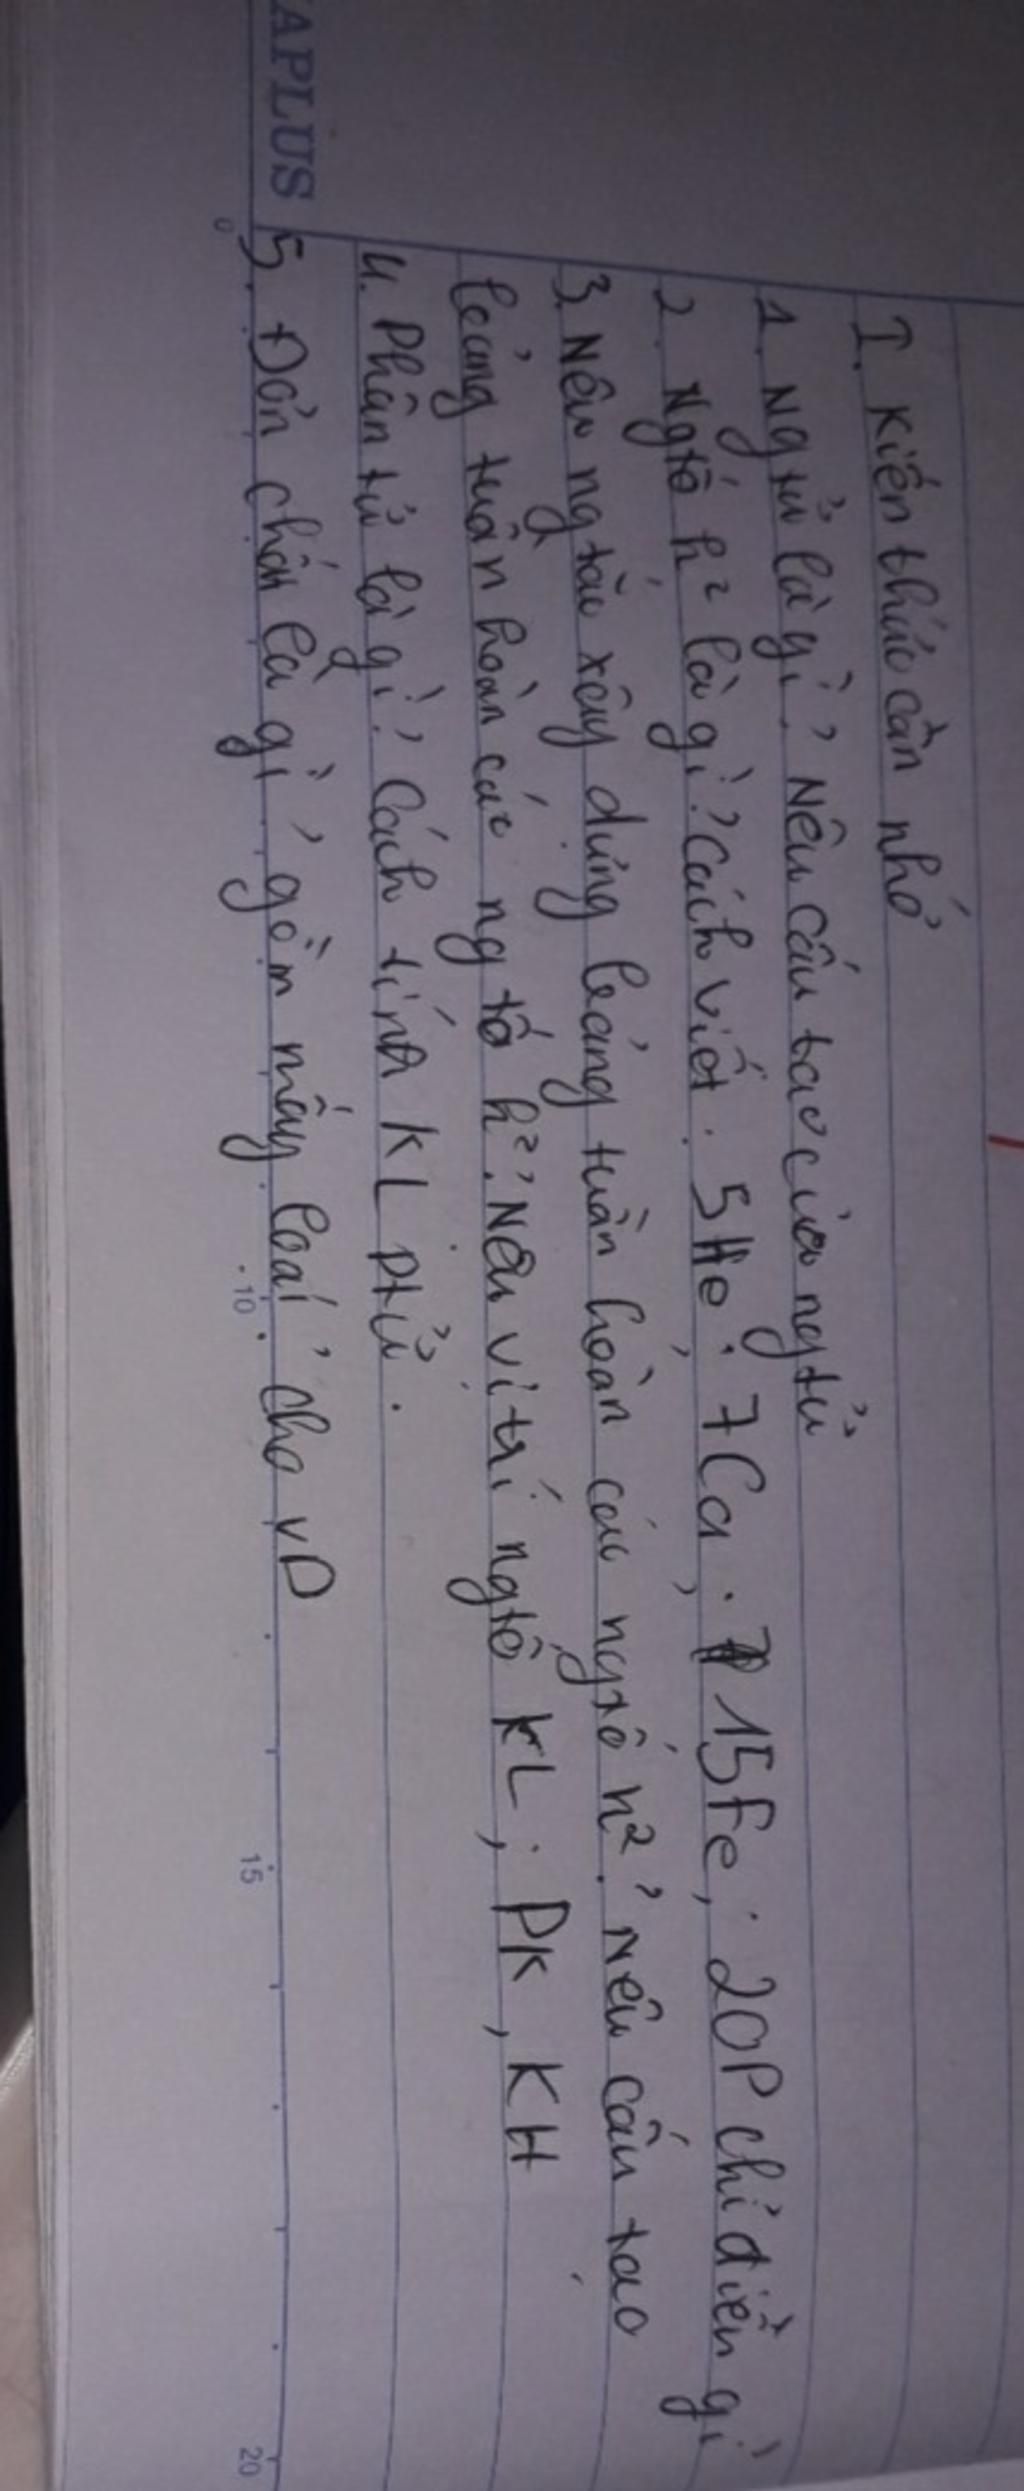 I. Kiến thức cần nhớ
1. Ng tử là gì? Nêu cấu tạo của ng tử
2. Ng tố h² là gì? Cách viết: 5He; 7Ca; 15Fe; 20P chỉ điền gì
3. Nêu ng tắc xây dựng bảng tuần hoàn các ng tố h²? Nêu cấu tạo
bảng tuần hoàn các ng tố h²? Nêu vị trí ng tố KL; PK, KH
4. Phân tử là gì? Cách tính KL ptử.
5. Đơn chất là gì, gồm mấy loại, cho VD
APLUS
0 10 15 20